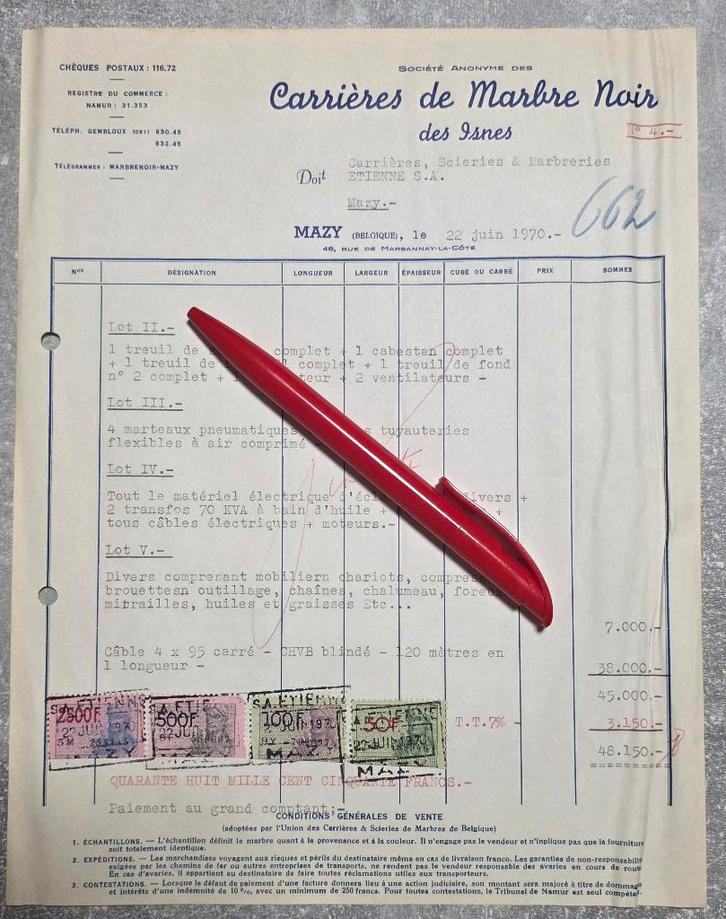 CHÈQUES POSTAUX : 116.72
REGISTRE DU COMMERCE :
NAMUR : 31.353
TÉLÉPH. GEMBLOUX (081) 630.45
632.45
TÉLÉGRAMMES : MARBRENOIR-MAZY
SOCIÉTÉ ANONYME DES
Carrières de Marbre Noir
des Isnes
N° 4.-
Doit
Carrières, Scieries & Marbreries
ETIENNE S.A.
Mazy.-
662
MAZY (BELGIQUE), le 22 juin 1970.-
48, RUE DE MARSANNAY-LA-CÔTE
Nos DÉSIGNATION LONGUEUR LARGEUR ÉPAISSEUR CUBE OU CARRÉ PRIX SOMMES
Lot II.-
1 treuil de complet + 1 cabestan complet
+ 1 treuil de complet + 1 treuil de fond
n° 2 complet + + 2 ventilateurs -
Lot III.-
4 marteaux pneumatiques tuyauteries
flexibles à air comprimé -
Lot IV.-
Tout le matériel électrique divers +
2 transfos 70 KVA à bain d'huile + +
tous câbles électriques + moteurs.-
Lot V.-
Divers comprenant mobiliern chariots,
brouettesn outillage, chaînes, chalumeau,
mitrailles, huiles et graisses Etc...
7.000.-
Câble 4 x 95 carré - CHVB blindé - 120 mètres en
1 longueur -
38.000.-
45.000.-
2500F 500F 100F 50F
T.T.7% - 3.150.-
48.150.-
QUARANTE HUIT MILLE CENT CINQUANTE FRANCS.-
Paiement au grand comptant;-
CONDITIONS GÉNÉRALES DE VENTE
(adoptées par l'Union des Carrières & Scieries de Marbres de Belgique)
1. ÉCHANTILLONS. — L'échantillon définit le marbre quant à la provenance et à la couleur. Il n'engage pas le vendeur et n'inplique pas que la fourniture
soit totalement identique.
2. EXPÉDITIONS. — Les marchandises voyagent aux risques et périls du destinataire même en cas de livraison franco. Les garanties de non-responsabilité
exigées par les chemins de fer ou autres entreprises de transports, ne rendent pas le vendeur responsable des avaries en cours de route
En cas d'avaries, il appartient au destinataire de faire toutes réclamations utiles aux transporteurs.
3. CONTESTATIONS. — Lorsque le défaut de paiement d'une facture donnera lieu à une action judiciaire, son montant sera majoré à titre de dommages
et intérêts d'une indemnité de 10 %, avec un minimum de 250 francs. Pour toutes contestations, le Tribunal de Namur est seul compétent.